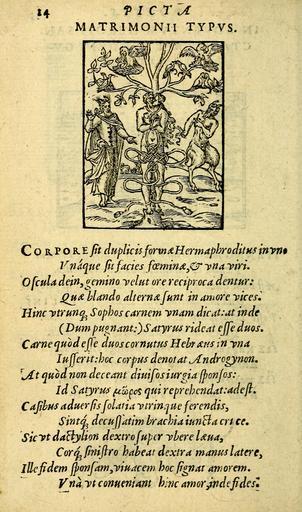 14 PICTA
MATRIMONII TYPVS.
CORPORE sit duplicis formæ Hermaphroditus in vno
Vnáque sit facies fœminæ, & vna viri.
Oscula dein, gemino velut ore reciproca dentur:
Quæ blando alternæ sunt in amore vices.
Hinc vtrunq; Sophos carnem vnam dicat: at inde
(Dum pugnant:) Satyrus rideat esse duos.
Carne quòd esse duos cornutus Hebræus in vna
Iusserit: hoc corpus denotat Androgynon.
At quòd non deceant diuisos iurgia sponsos:
Id Satyrus μῶμος qui reprehendat: adest.
Casibus aduersis solatia virinque ferendis,
Sintq; decussatim brachia iuncta cruce.
Sic vt dactylion dextro super vbere læua,
Corq; sinistro habeat dextra manus latere,
Ille fidem sponsam, viuacem hoc signat amorem.
Vnà vt conueniant hinc amor, inde fides.